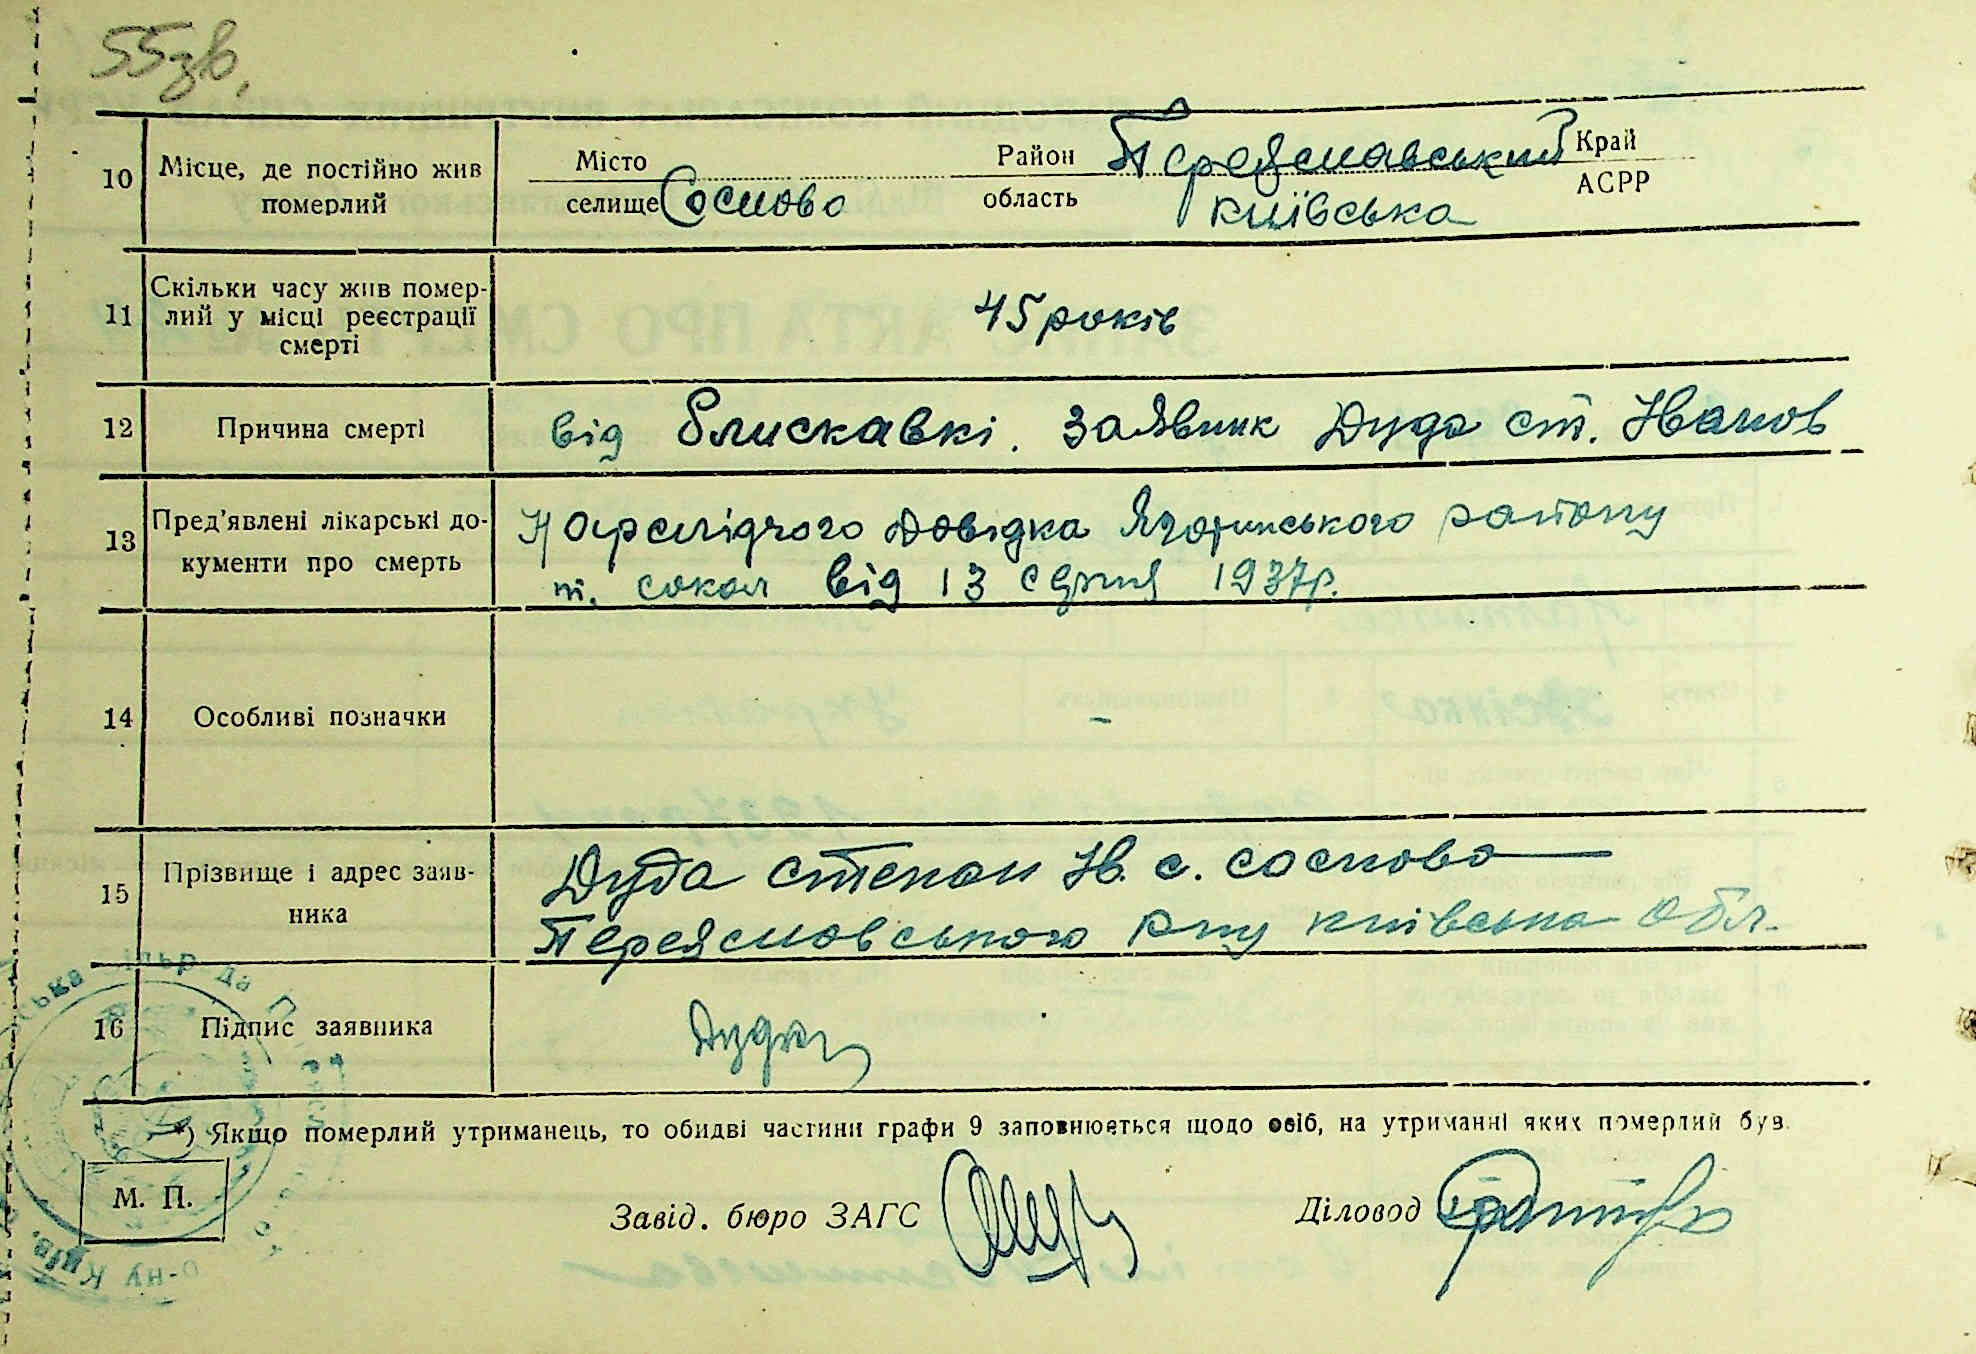 55зв.
10 Місце, де постійно жив померлий
Місто
селище Сосново
Район Переяславський Край
область Київська АСРР
11 Скільки часу жив помер-
лий у місці реєстрації
смерті
45 років
12 Причина смерті
від блискавкі. заявник Дуда ст. Іванов
13 Пред'явлені лікарські до-
кументи про смерть
довідка Яготинського району
від 13 серпня 1937р.
14 Особливі позначки
–
15 Прізвище і адрес заяв-
ника
Дуда Степан Ів. с. Сосново
Переяславського р-ну Київська обл.
16 Підпис заявника
Дуда
*) Якщо померлий утриманець, то обидві частини графи 9 заповнюється щодо осіб, на утриманні яких померлий був.
М. П.
Завід. бюро ЗАГС
Діловод